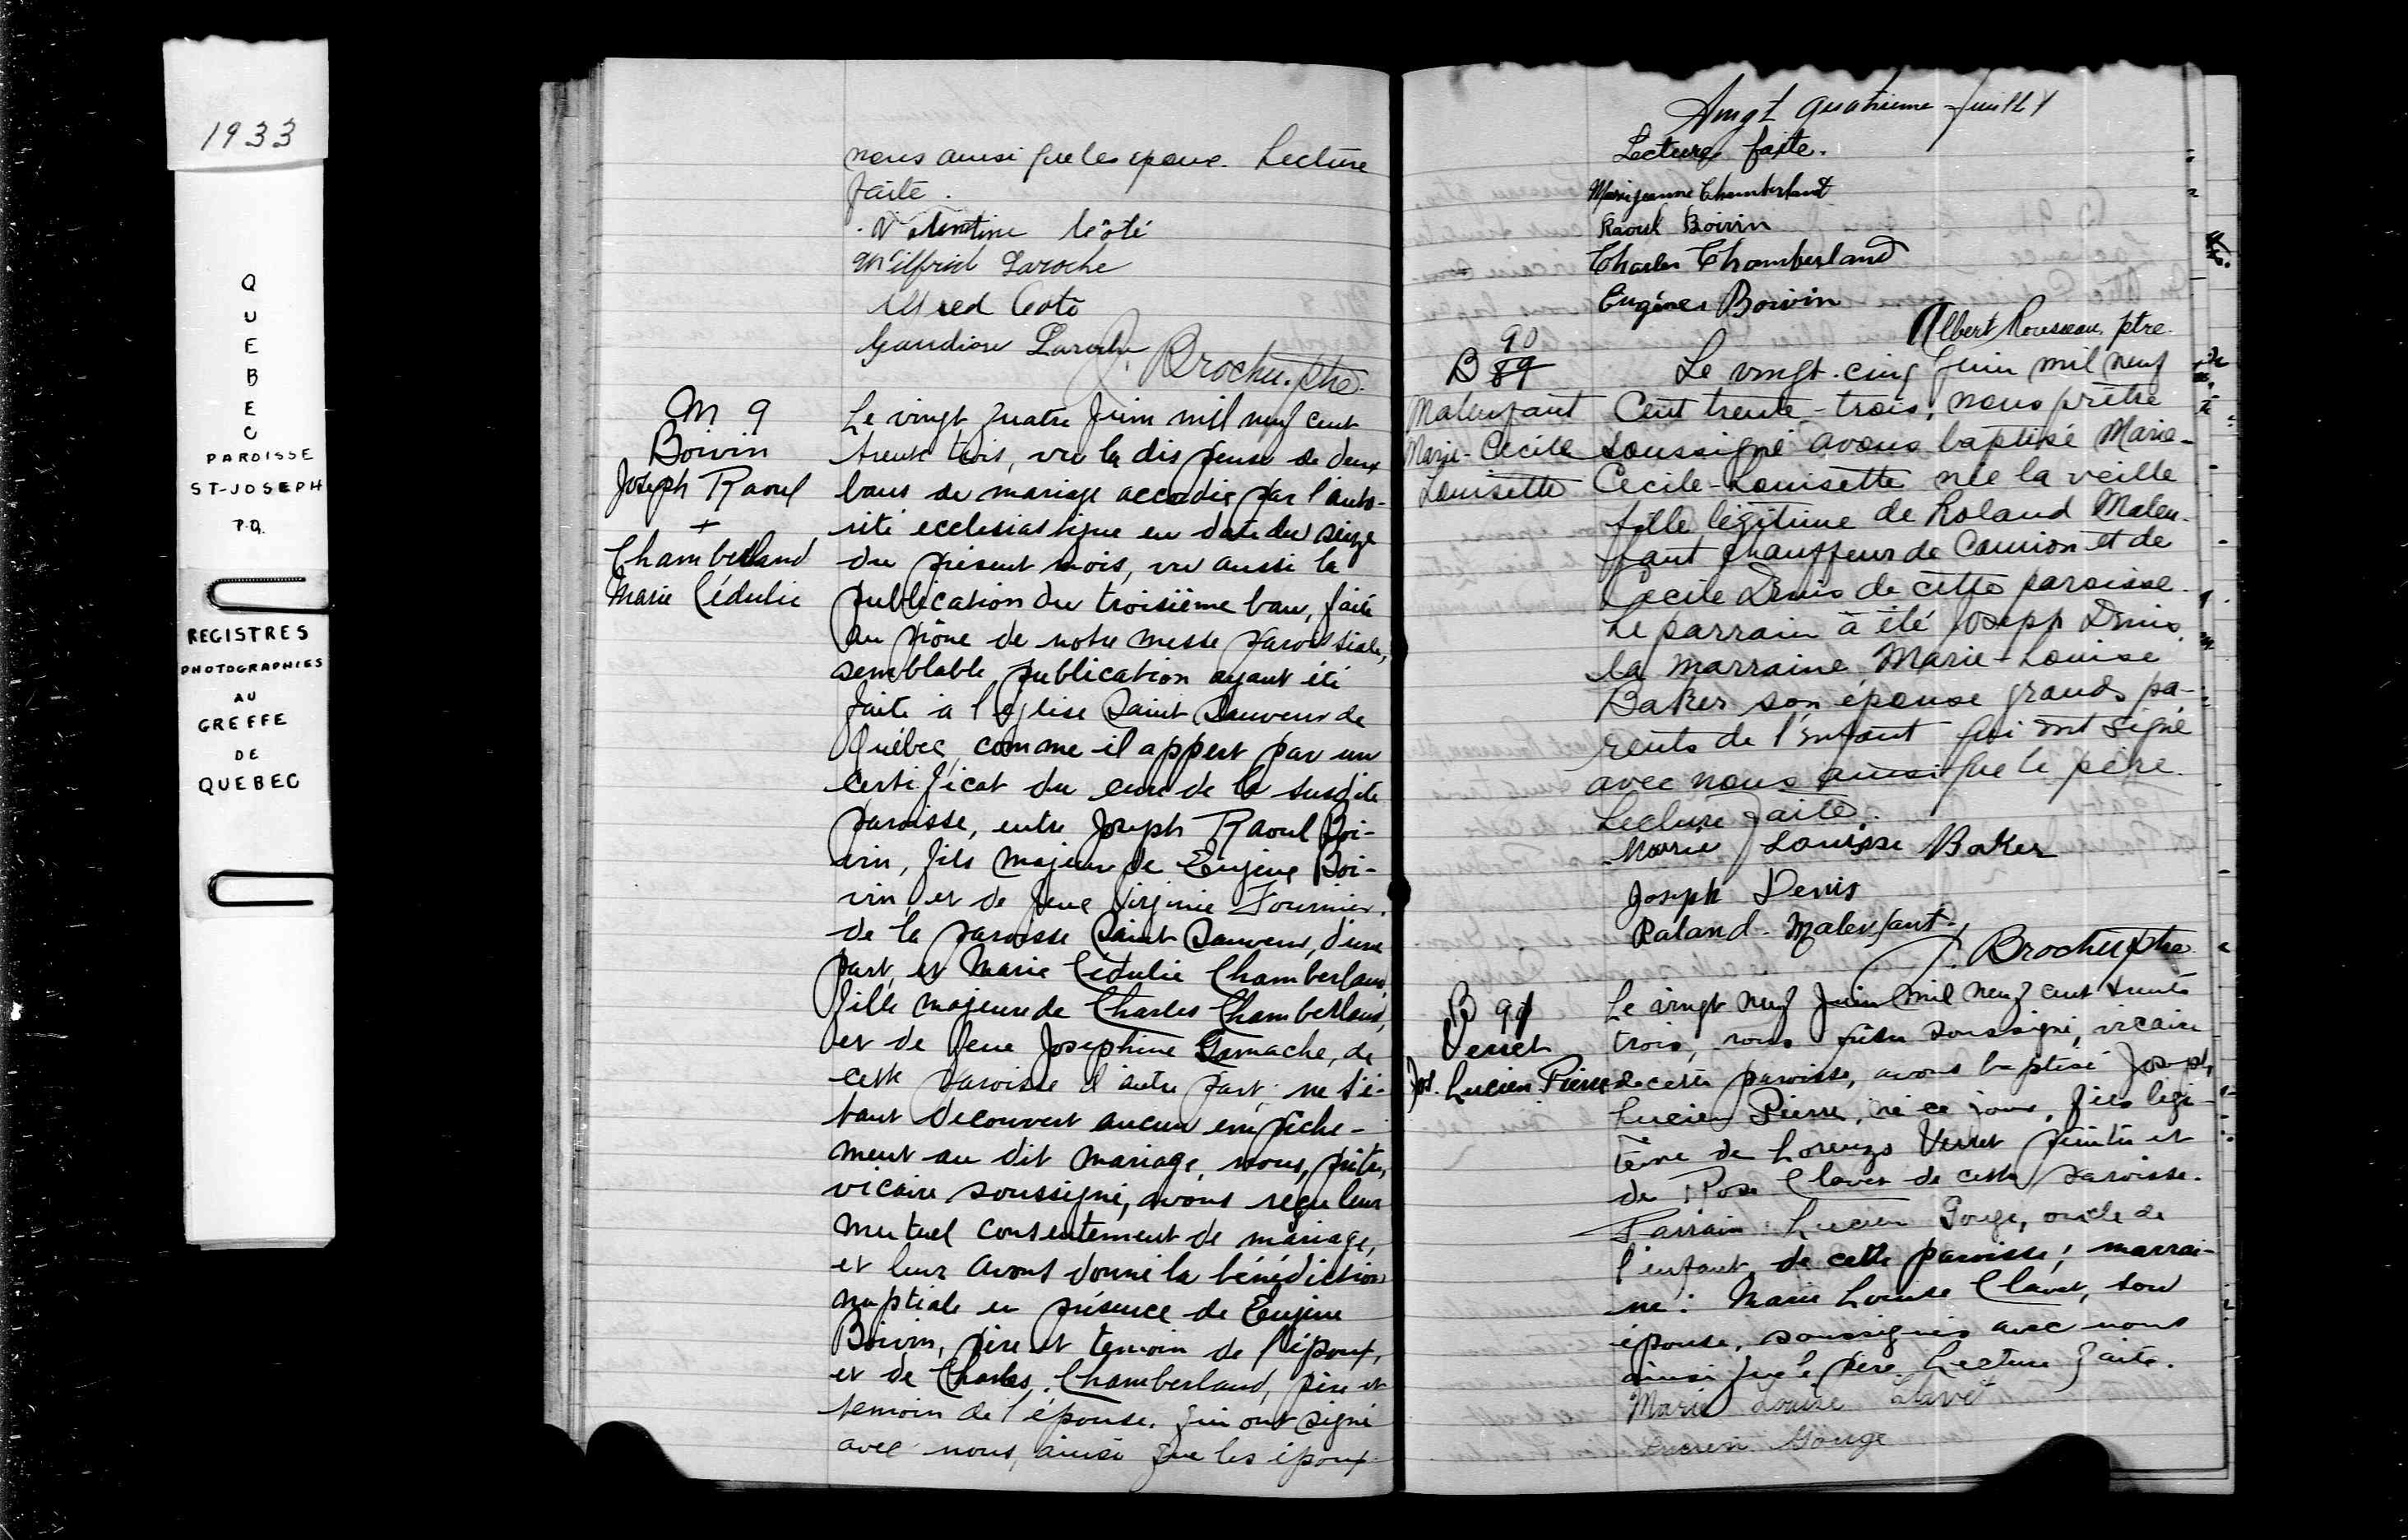 1933
QUEBEC
PAROISSE
ST-JOSEPH
P.Q.
REGISTRES
PHOTOGRAPHIES
AU
GREFFE
DE
QUEBEC
nous ainsi que les epoux. Lecture
faite.
Valentine Côté
Wilfrid Laroche
Alfred Coté
Gaudiose Laroche
J. Brochu, ptre.
M 9
Boivin
Joseph Raoul
+
Chamberland
Marie Cédulie
Le vingt quatre Juin mil neuf cent
trente trois, vu la dispense de deux
bans de mariage accordée par l'auto-
rité ecclesiastique en date du seize
du présent mois, vu aussi la
publication du troisième ban, faite
au prône de notre messe paroissiale,
semblable publication ayant été
faite à l'église Saint Sauveur de
Québec, comme il appert par un
certificat du curé de la susdite
paroisse, entre Joseph Raoul Boi-
vin, fils majeur de Eugène Boi-
vin, et de feue Virginie Fournier,
de la paroisse Saint Sauveur, d'une
part, et Marie Cédulie Chamberland,
fille majeure de Charles Chamberland,
et de feue Josephine Gamache, de
cette paroisse d'autre part; ne s'é-
tant découvert aucun empêche-
ment au dit mariage, nous, prêtre,
vicaire soussigné, avons reçu leur
mutuel consentement de mariage,
et leur avons donné la bénédiction
nuptiale en présence de Eugène
Boivin, père et temoin de l'époux,
et de Charles Chamberland, père et
temoin de l'épouse. qui ont signé
avec nous, ainsi que les époux.
Vingt quatrieme feuillet
Lecture faite.
Marie jeanne Chamberland
Raoul Boivin
Charles Chamberland
Eugène Boivin
Albert Rousseau, ptre.
90
B 89
Malenfant
Marie-Cecile
Louisette
Le vingt-cinq Juin mil neuf
Cent trente-trois, nous prêtre
soussigné avons baptisé Marie-
Cecile-Louisette née la veille
fille légitime de Roland Malen-
fant chauffeur de Camion et de
Cecile Denis de cette paroisse.
Le parrain à été Joseph Denis,
la marraine Marie-Louise
Baker son épouse grands pa-
rents de l'enfant qui ont signé
avec nous ainsi que le père.
Lecture faite.
Marie Louisse Baker
Joseph Denis
Roland Malenfant
J. Brochu, ptre
B 91
Verret
Jos. Lucien Pierre
Le vingt neuf Juin mil neuf cent trente
trois, nous prêtre soussigné, vicaire
de cette paroisse, avons baptisé Joseph,
Lucien Pierre, né ce jour, fils légi-
time de Lorenzo Verret peintre et
de Rose Clavet de cette paroisse.
Parrain: Lucien Gouge, oncle de
l'enfant, de cette paroisse; marrai-
ne: Marie Louise Clavet, son
épouse, soussignés avec nous
ainsi que le père. Lecture faite.
Marie Louise Clavet
Lucien Gouge